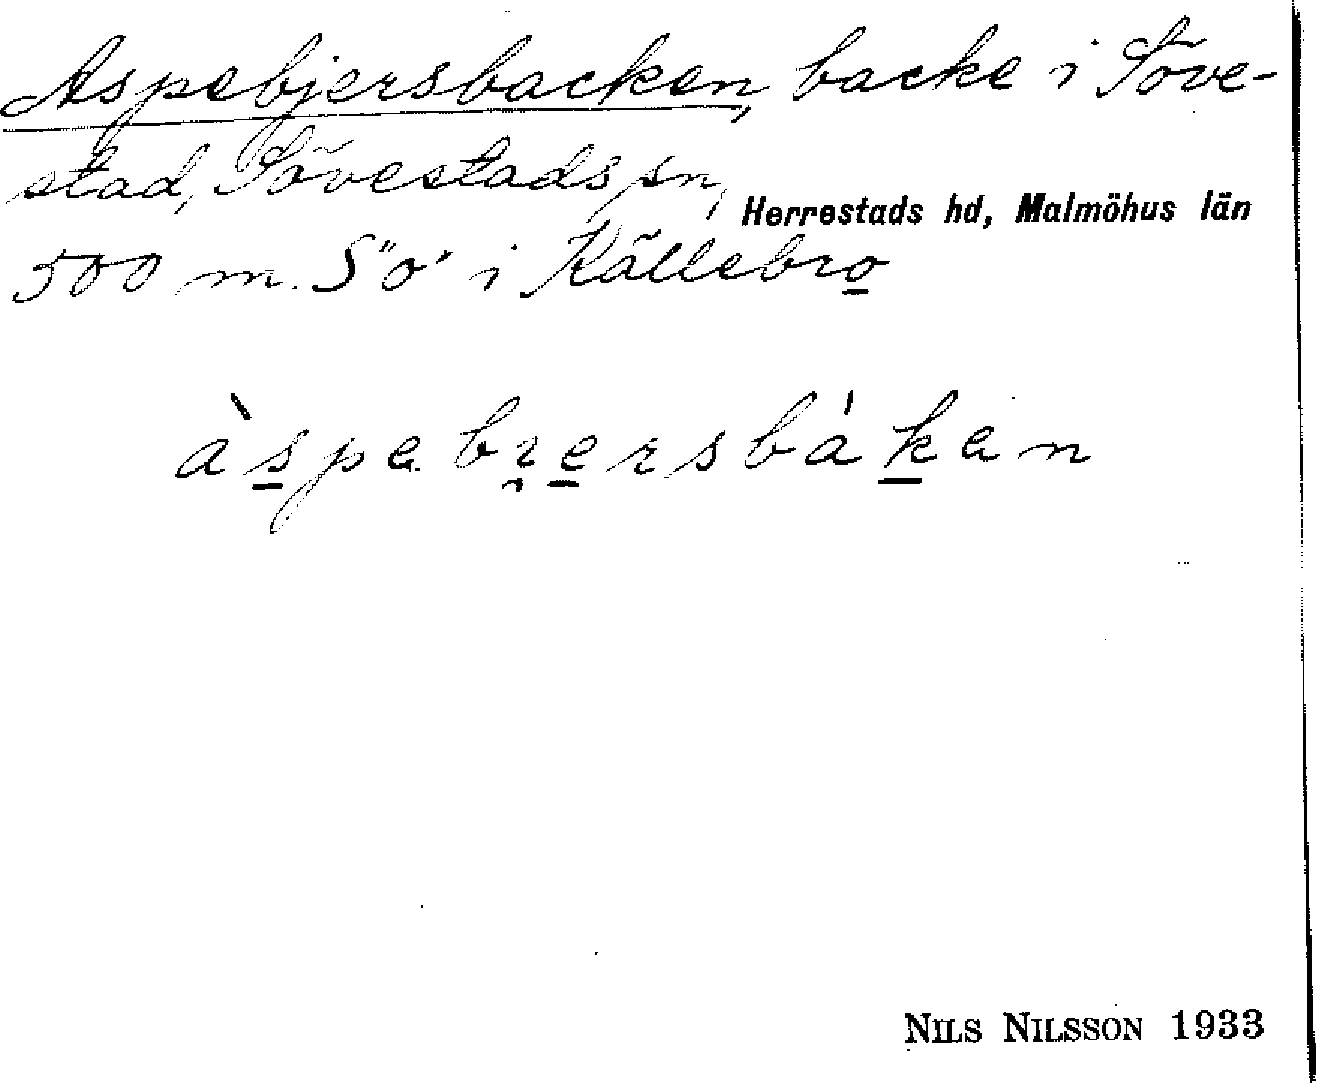 Aspebjersbacken, backe i Söve-
stad, Sövestads sn, Herrestads hd, Malmöhus län
500 m. S"o' i Källebro
àspebı̯ersbáken
NILS NILSSON 1933